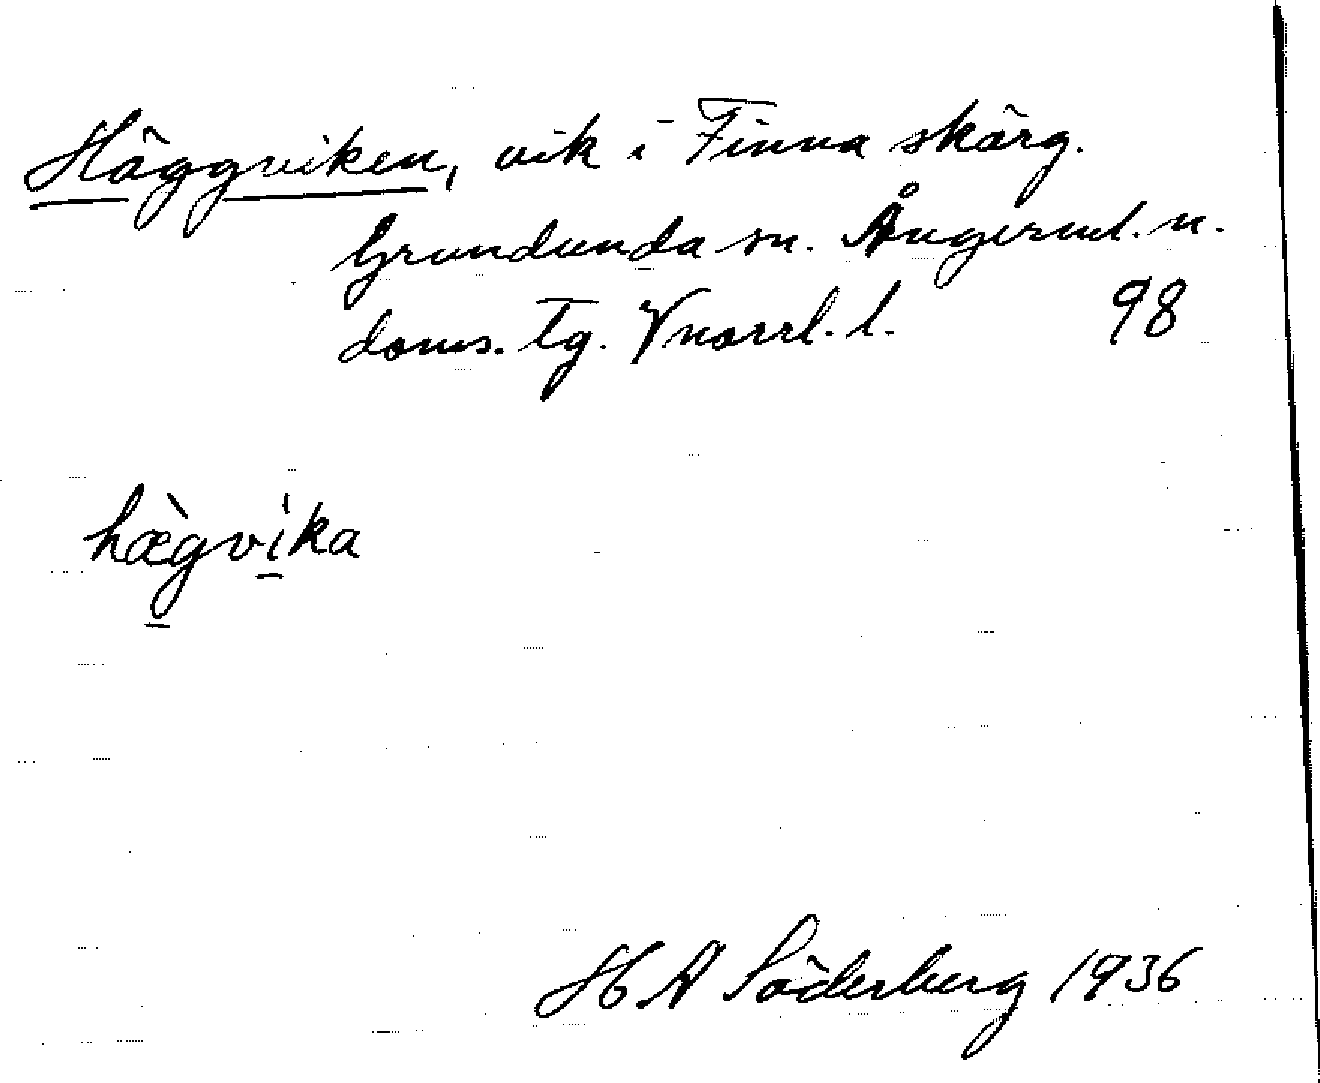 Häggviken, vik i Finna skärg.
Grundsunda sn. Ångerml. n.
doms. tg. Vnorrl. l. 98
hæ̀gvika
H A Söderberg 1936